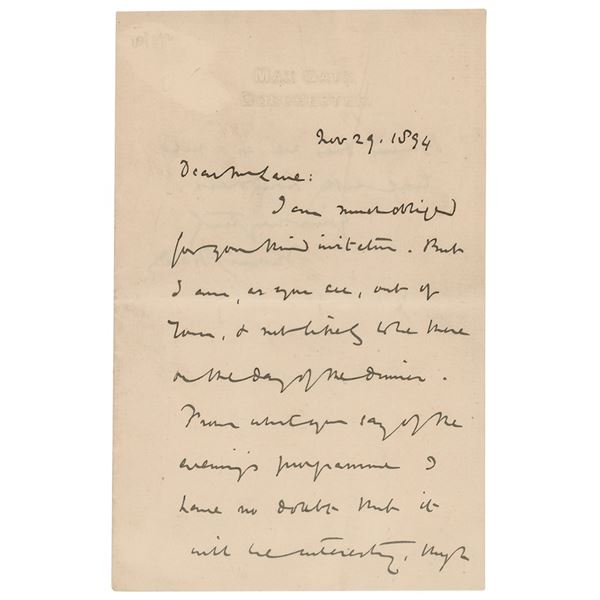 MAX GATE
DORCHESTER
Nov 29. 1894
Dear Mr Lane:
I am much obliged
for your kind invitation. But
I am, as you see, out of
Town, & not likely to be there
on the day of the dinner.
From what you say of the
evening's programme I
have no doubt that it
will be interesting, though